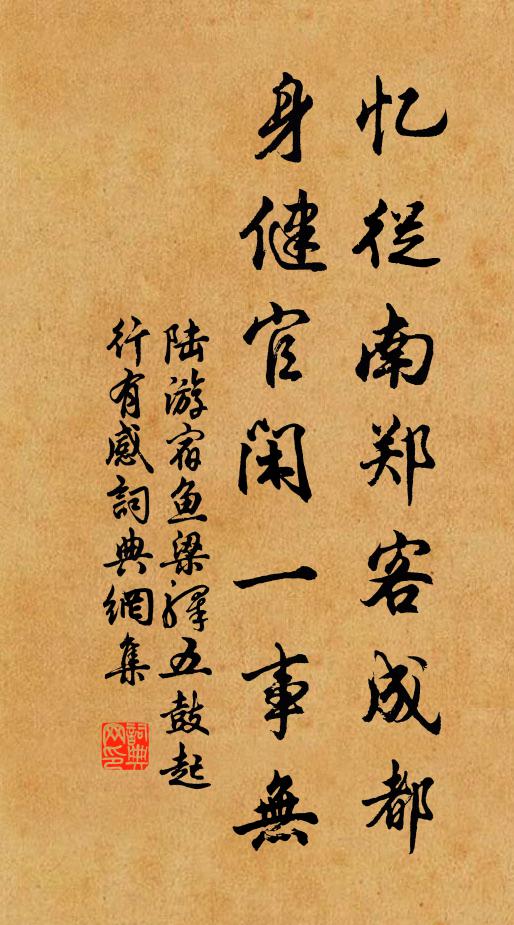 忆从南郑客成都
身健官闲一事無
陆游宿鱼梁驿五鼓起
行有感詞典網集
詞典
网印